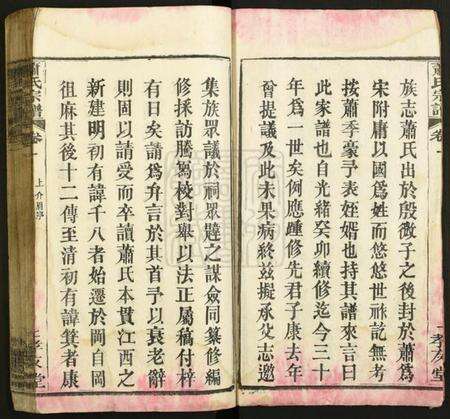 族志蕭氏出於殷微子之後封於蕭爲
宋附庸以國爲姓而悠悠世祚記無考
按蕭季豪予表姪婿也持其譜來言曰
此家譜也自光緒癸卯續修迄今三十
年爲一世矣例應踵修先君子康去年
曾提議及此未果病終茲擬承父志邀
集族眾議於祠眾韙之謀僉同纂修編
修採訪騰寫校對舉以法正屬稿付梓
有日矣請爲弁言於其首予以衰老辭
則固以請爰而卒讀蕭氏本貫江西之
新建明初有諱千八者始遷於岡自岡
徂麻其後十二傳至清初有諱箕者康
蕭氏宗譜
卷一
孝友堂
蕭氏宗譜
卷一
孝友堂